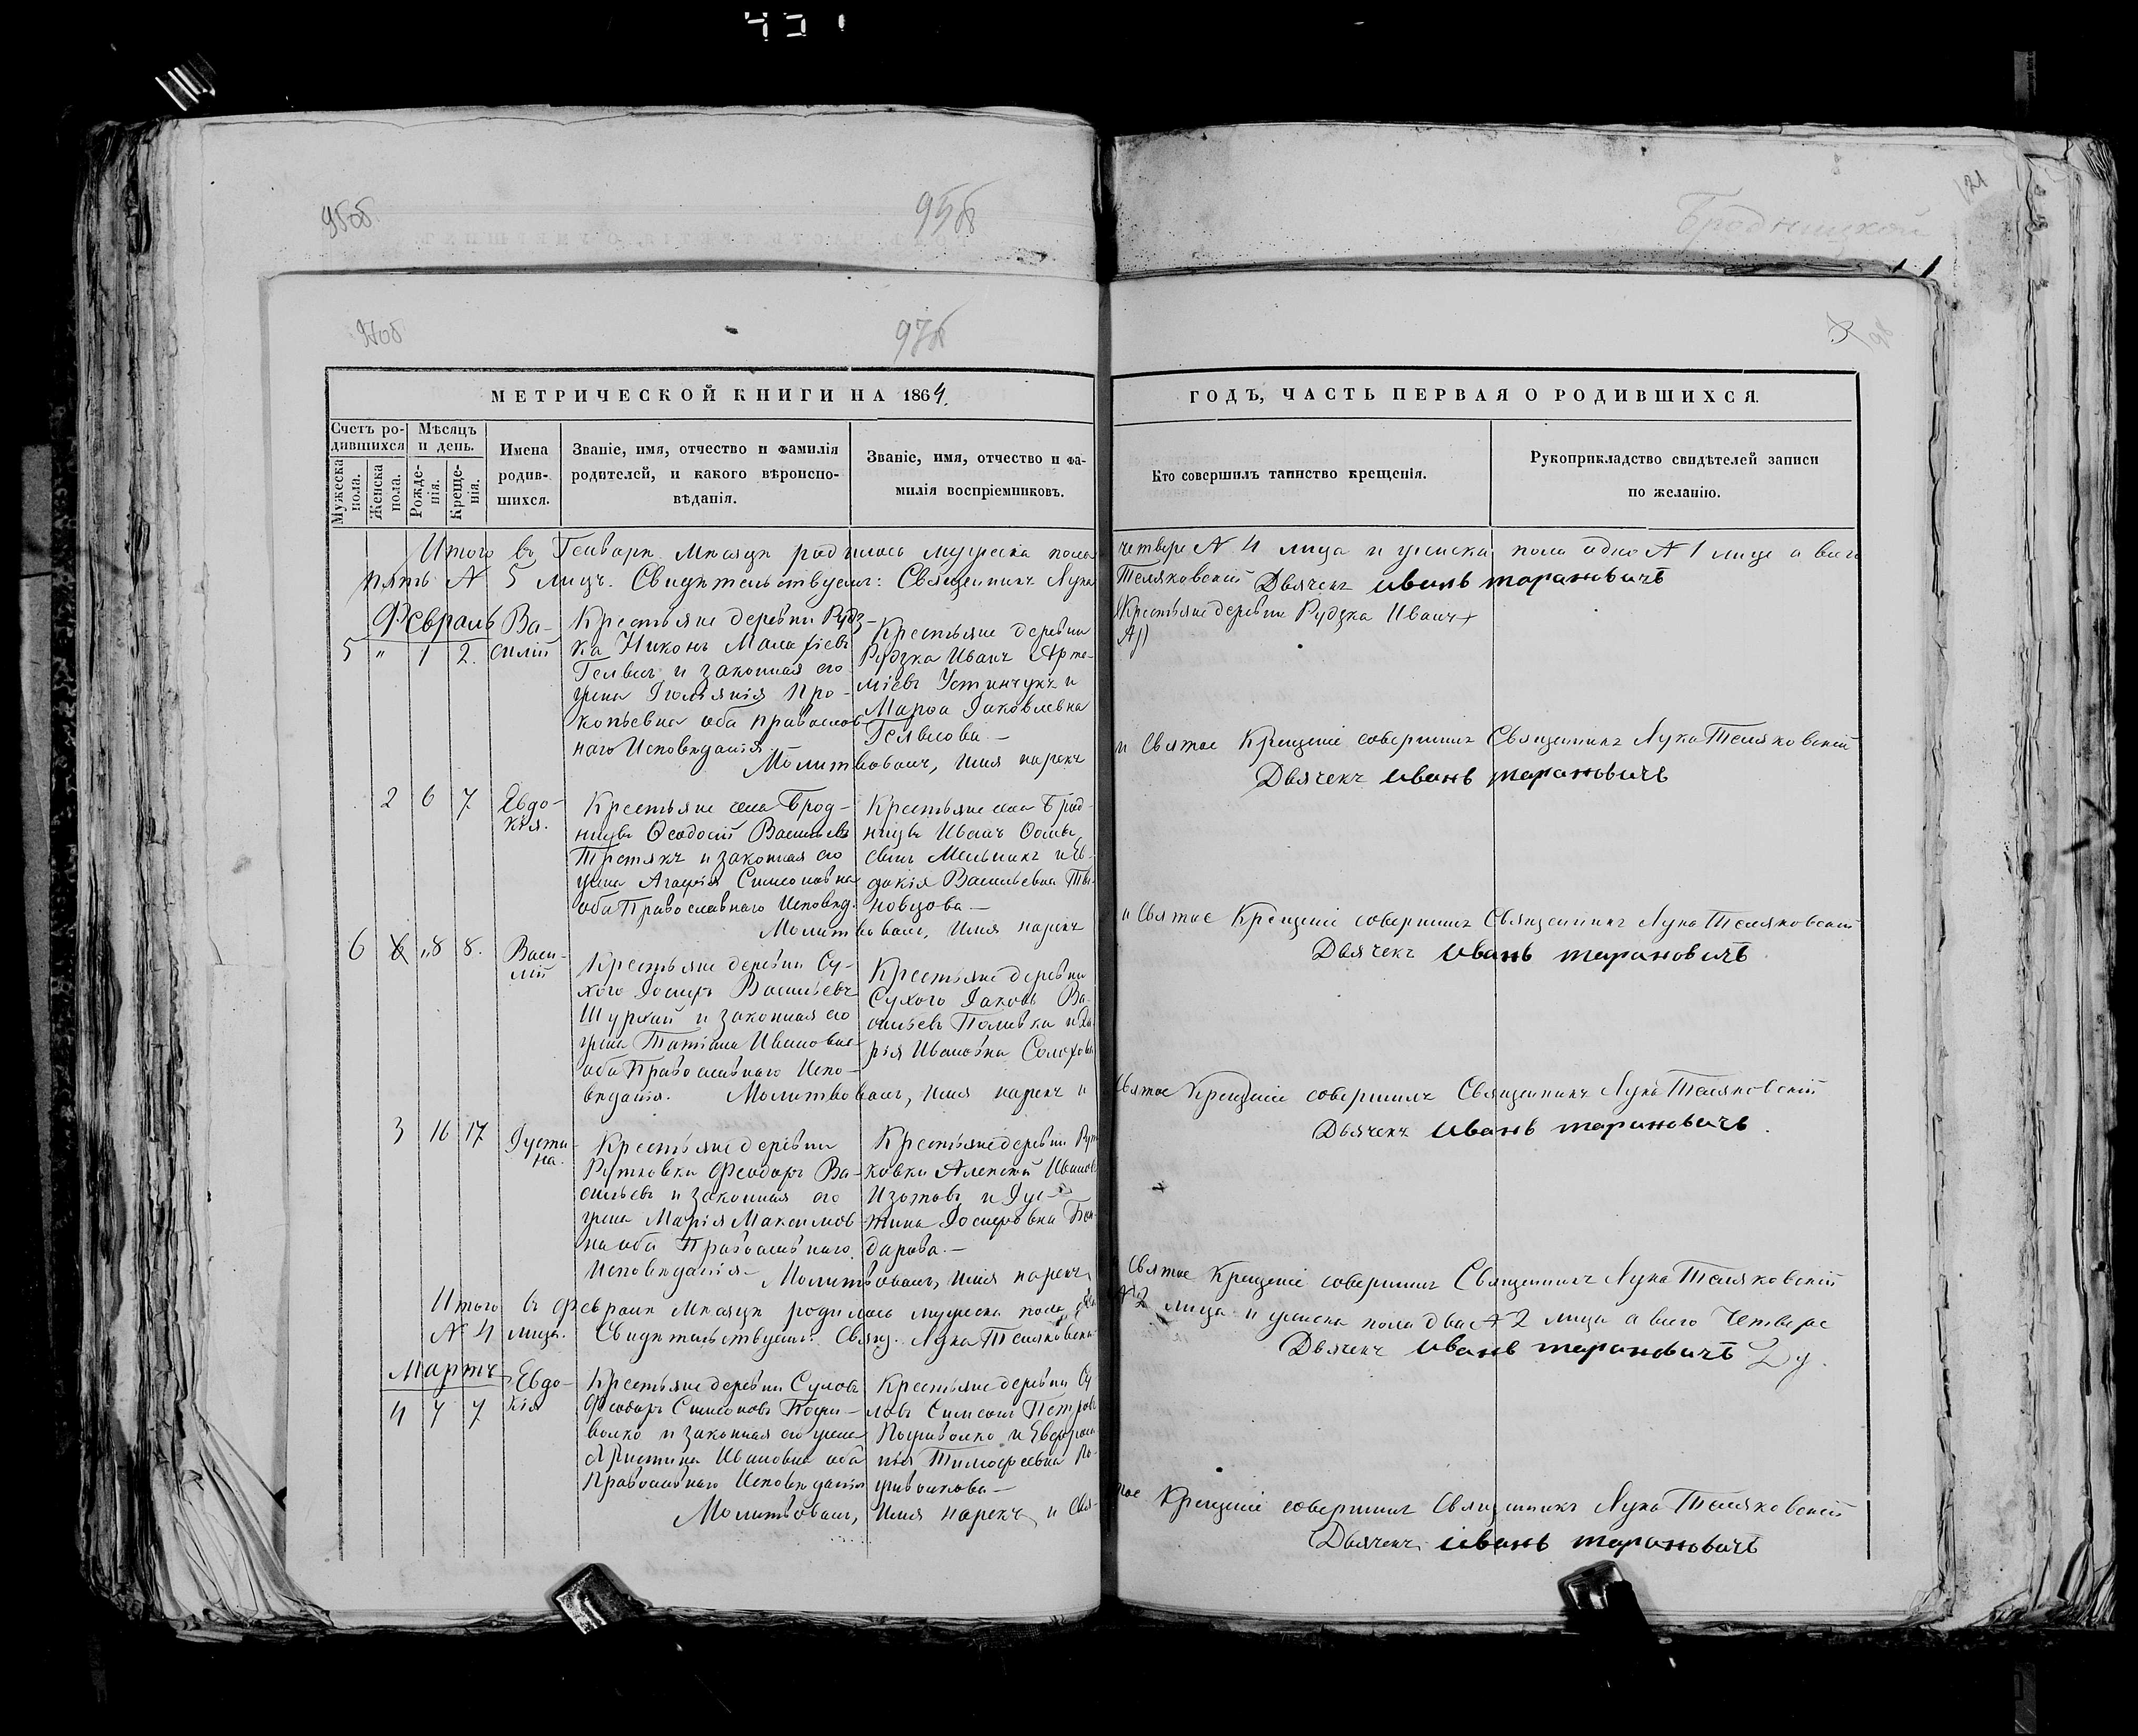 95об.
95об
Бродницкой
121
97об
97об
98
МЕТРИЧЕСКОЙ КНИГИ НА 1864
ГОДЪ, ЧАСТЬ ПЕРВАЯ О РОДИВШИХСЯ.
Счетъ ро-
дившихся
Мужеска пола.
Женска пола.
Мѣсяцъ
и день.
Рожде-
нія.
Креще-
нія.
Имена
родив-
шихся.
Званіе, имя, отчество и фамилія
родителей, и какого вѣроиспо-
вѣданія.
Званіе, имя, отчество и фа-
милія воспріемниковъ.
Кто совершилъ таинство крещенія.
Рукоприкладство свидѣтелей записи
по желанію.
Итого въ Генварѣ Мѣсяцѣ родилось мужеска пола четверо № 4 лица и женска пола одно № 1 лице а всего
пять № 5 лицъ. Свидѣтельствуемъ: Священникъ Лука Теляковскій Дьячекъ Иванъ тарановичъ
Февраль
5 " 1 2.
Ва-
силій
Крестьяне деревни Рудз-
ка Никонъ Малафіевъ
и законная его
жена Іюліанія Про-
копьевна оба православ
наго Исповѣданія.
Крестьяне деревни
Рудзка Иванъ Арте-
міевъ Устинчукъ и
Марѳа Іаковлевна
Крестьяне деревни Рудзка Иванъ
Молитвовалъ, Имя нарекъ и Святое Крещеніе совершилъ Священникъ Лука Теляковскій
Дьячекъ Иванъ тарановичъ
2 6 7
Евдо-
кія.
Крестьяне села Брод-
ницы Ѳеодосій Васильевъ
Третякъ и законная его
жена Агафія Симеоновна
оба Православнаго Исповѣд.
Крестьяне села Брод-
ницы Иванъ
Мельникъ и Ев-
докія Васильевна
Молитвовалъ, Имя нарекъ и Святое Крещеніе совершилъ Священникъ Лука Теляковскій
Дьячекъ Иванъ тарановичъ
6 " 8 8.
Васи-
лій
Крестьяне деревни Су-
хого Іосифъ Васильевъ
и законная его
жена Татіана Ивановна
оба Православнаго Испо-
вѣданія.
Крестьяне деревни
Сухого Іаковъ Ва-
сильевъ Поливка и Да-
рія Ивановна
Молитвовалъ, Имя нарекъ и Святое Крещеніе совершилъ Священникъ Лука Теляковскій
Дьячекъ Иванъ тарановичъ.
3 16 17
Іусти-
на.
Крестьяне деревни
Рутковки Феодоръ Ва-
сильевъ и законная его
жена Марія Максимов-
на оба Православнаго
Исповѣданія
Крестьяне деревни Рут-
ковки Алексѣй Ивановъ
Изотовъ и Іус-
тина Іосифовна Бон-
дарова.
Молитвовалъ, Имя нарекъ Святое Крещеніе совершилъ Священникъ Лука Теляковскій
Итого въ Февралѣ Мѣсяцѣ родилось мужеска пола два № 2 лица и женска пола два № 2 лица а всего Четверо
№ 4 лица. Свидѣтельствуемъ: Свящ. Лука Теляковскій Дьячекъ Иванъ тарановичъ
Мартъ
4 7 7
Евдо-
кія
Крестьяне деревни Сулова
Феодоръ Симеоновъ Пожи-
волко и законная его жена
Христина Ивановна оба
Православнаго Исповѣданія
Крестьяне деревни Су-
лова Симеонъ Петровъ
Поживолко и Евфроси-
нія Тимофеевна По-
живолкова
Молитвовалъ, Имя нарекъ и Святое Крещеніе совершилъ Священникъ Лука Теляковскій
Дьячекъ Иванъ тарановичъ